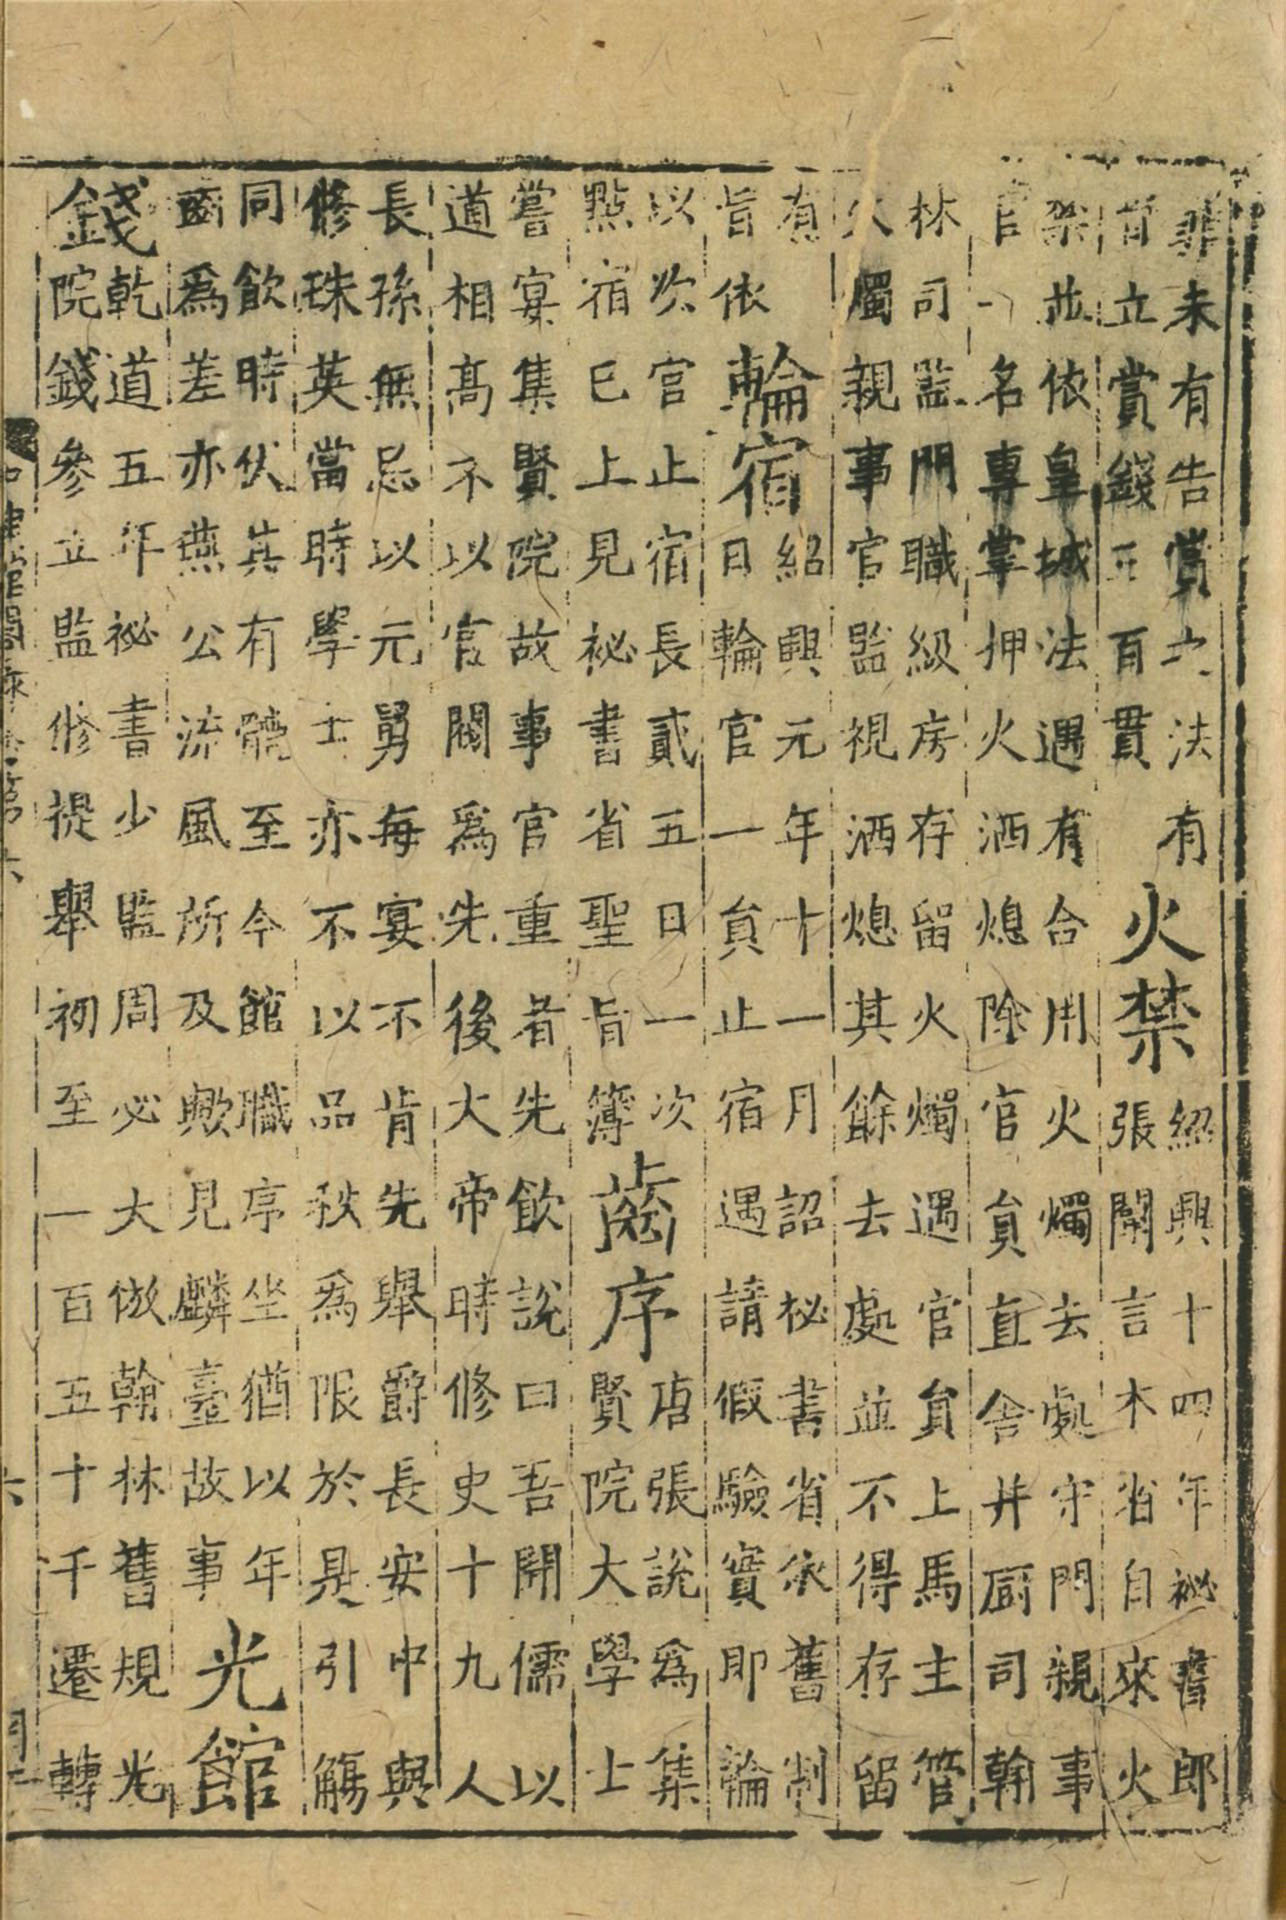 罪未有告賞之法有
旨立賞錢五百貫
火禁
紹興十四年祕書郎
張闡言本省自來火
禁並依皇城法遇有合用火燭去處守門親事
官一名專掌押火洒熄除官員直舍井厨司翰
林司監門職級房存留火燭遇官員上馬主管
火燭親事官監視洒熄其餘去處並不得存留
有
旨依
輪宿
紹興元年十一月詔祕書省依舊制
日輪官一員止宿遇請假驗實即輪
以次官止宿長貳五日一次
點宿已上見祕書省聖旨簿
齒序
唐張説爲集
賢院大學士
嘗宴集賢院故事官重者先飲説曰吾聞儒以
道相髙不以官閥爲先後大帝時修史十九人
長孫無忌以元舅每宴不肯先舉爵長安中與
修珠英當時學士亦不以品秩爲限於是引觴
同飲時伏其有體至今館職序坐猶以年
齒爲差亦燕公流風所及歟見麟臺故事
光館
錢
乾道五年祕書少監周必大倣翰林舊規光
院錢參立監修提舉初至一百五十千遷轉
中興館閣録卷第六
六